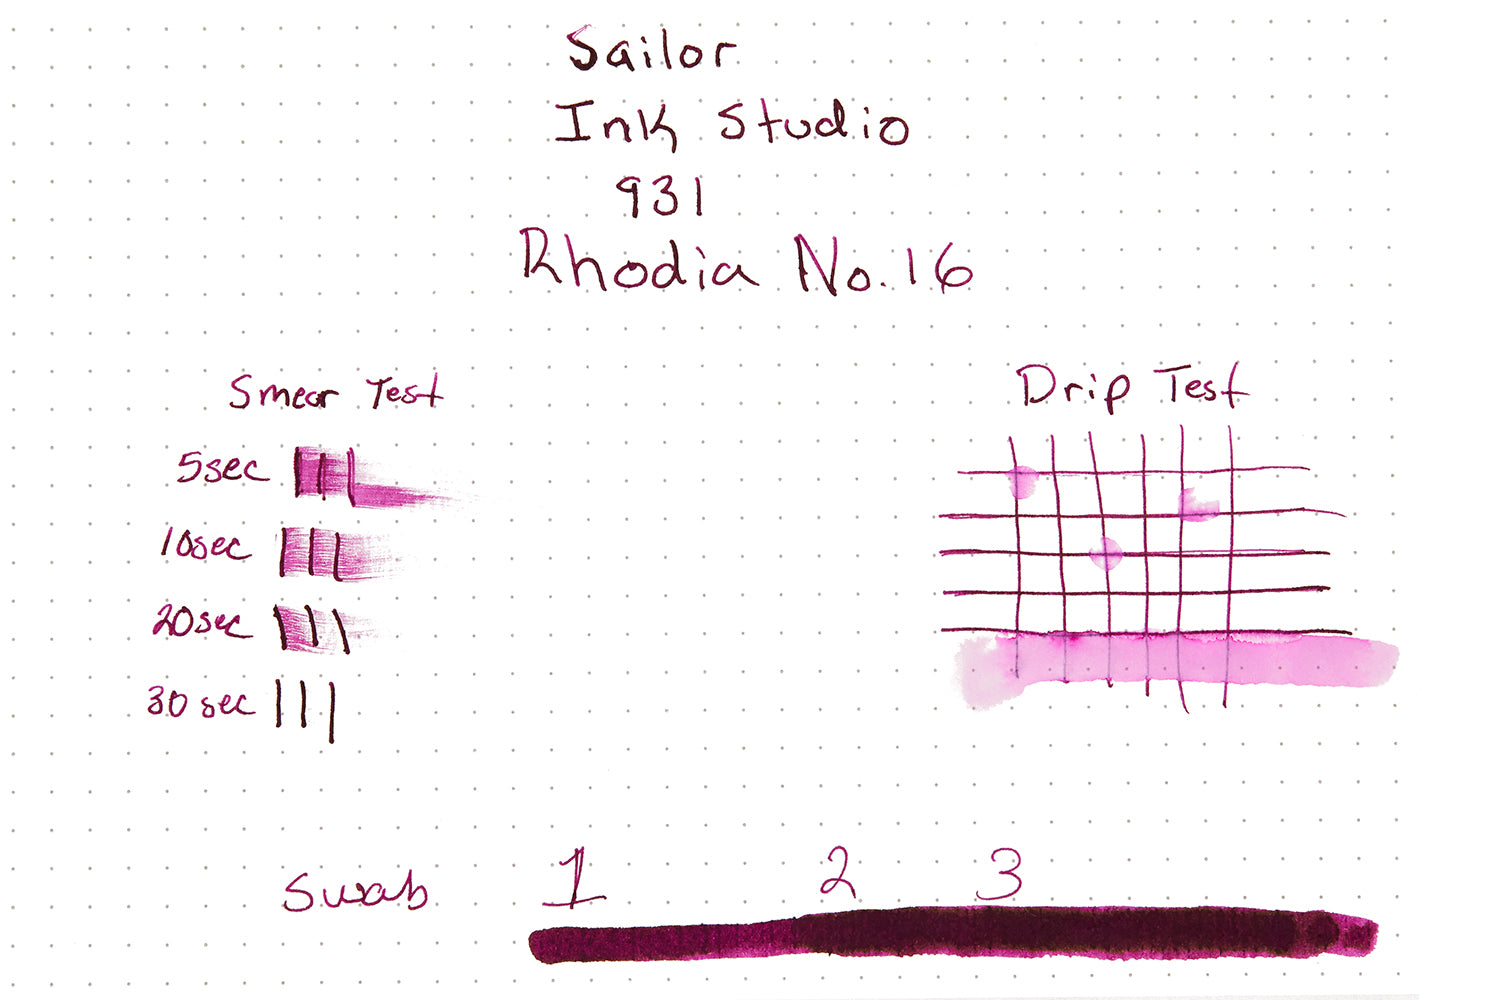 Sailor
Ink Studio
931
Rhodia No. 16
Smear Test
5sec
10sec
20sec
30 sec
Drip Test
Swab 1 2 3